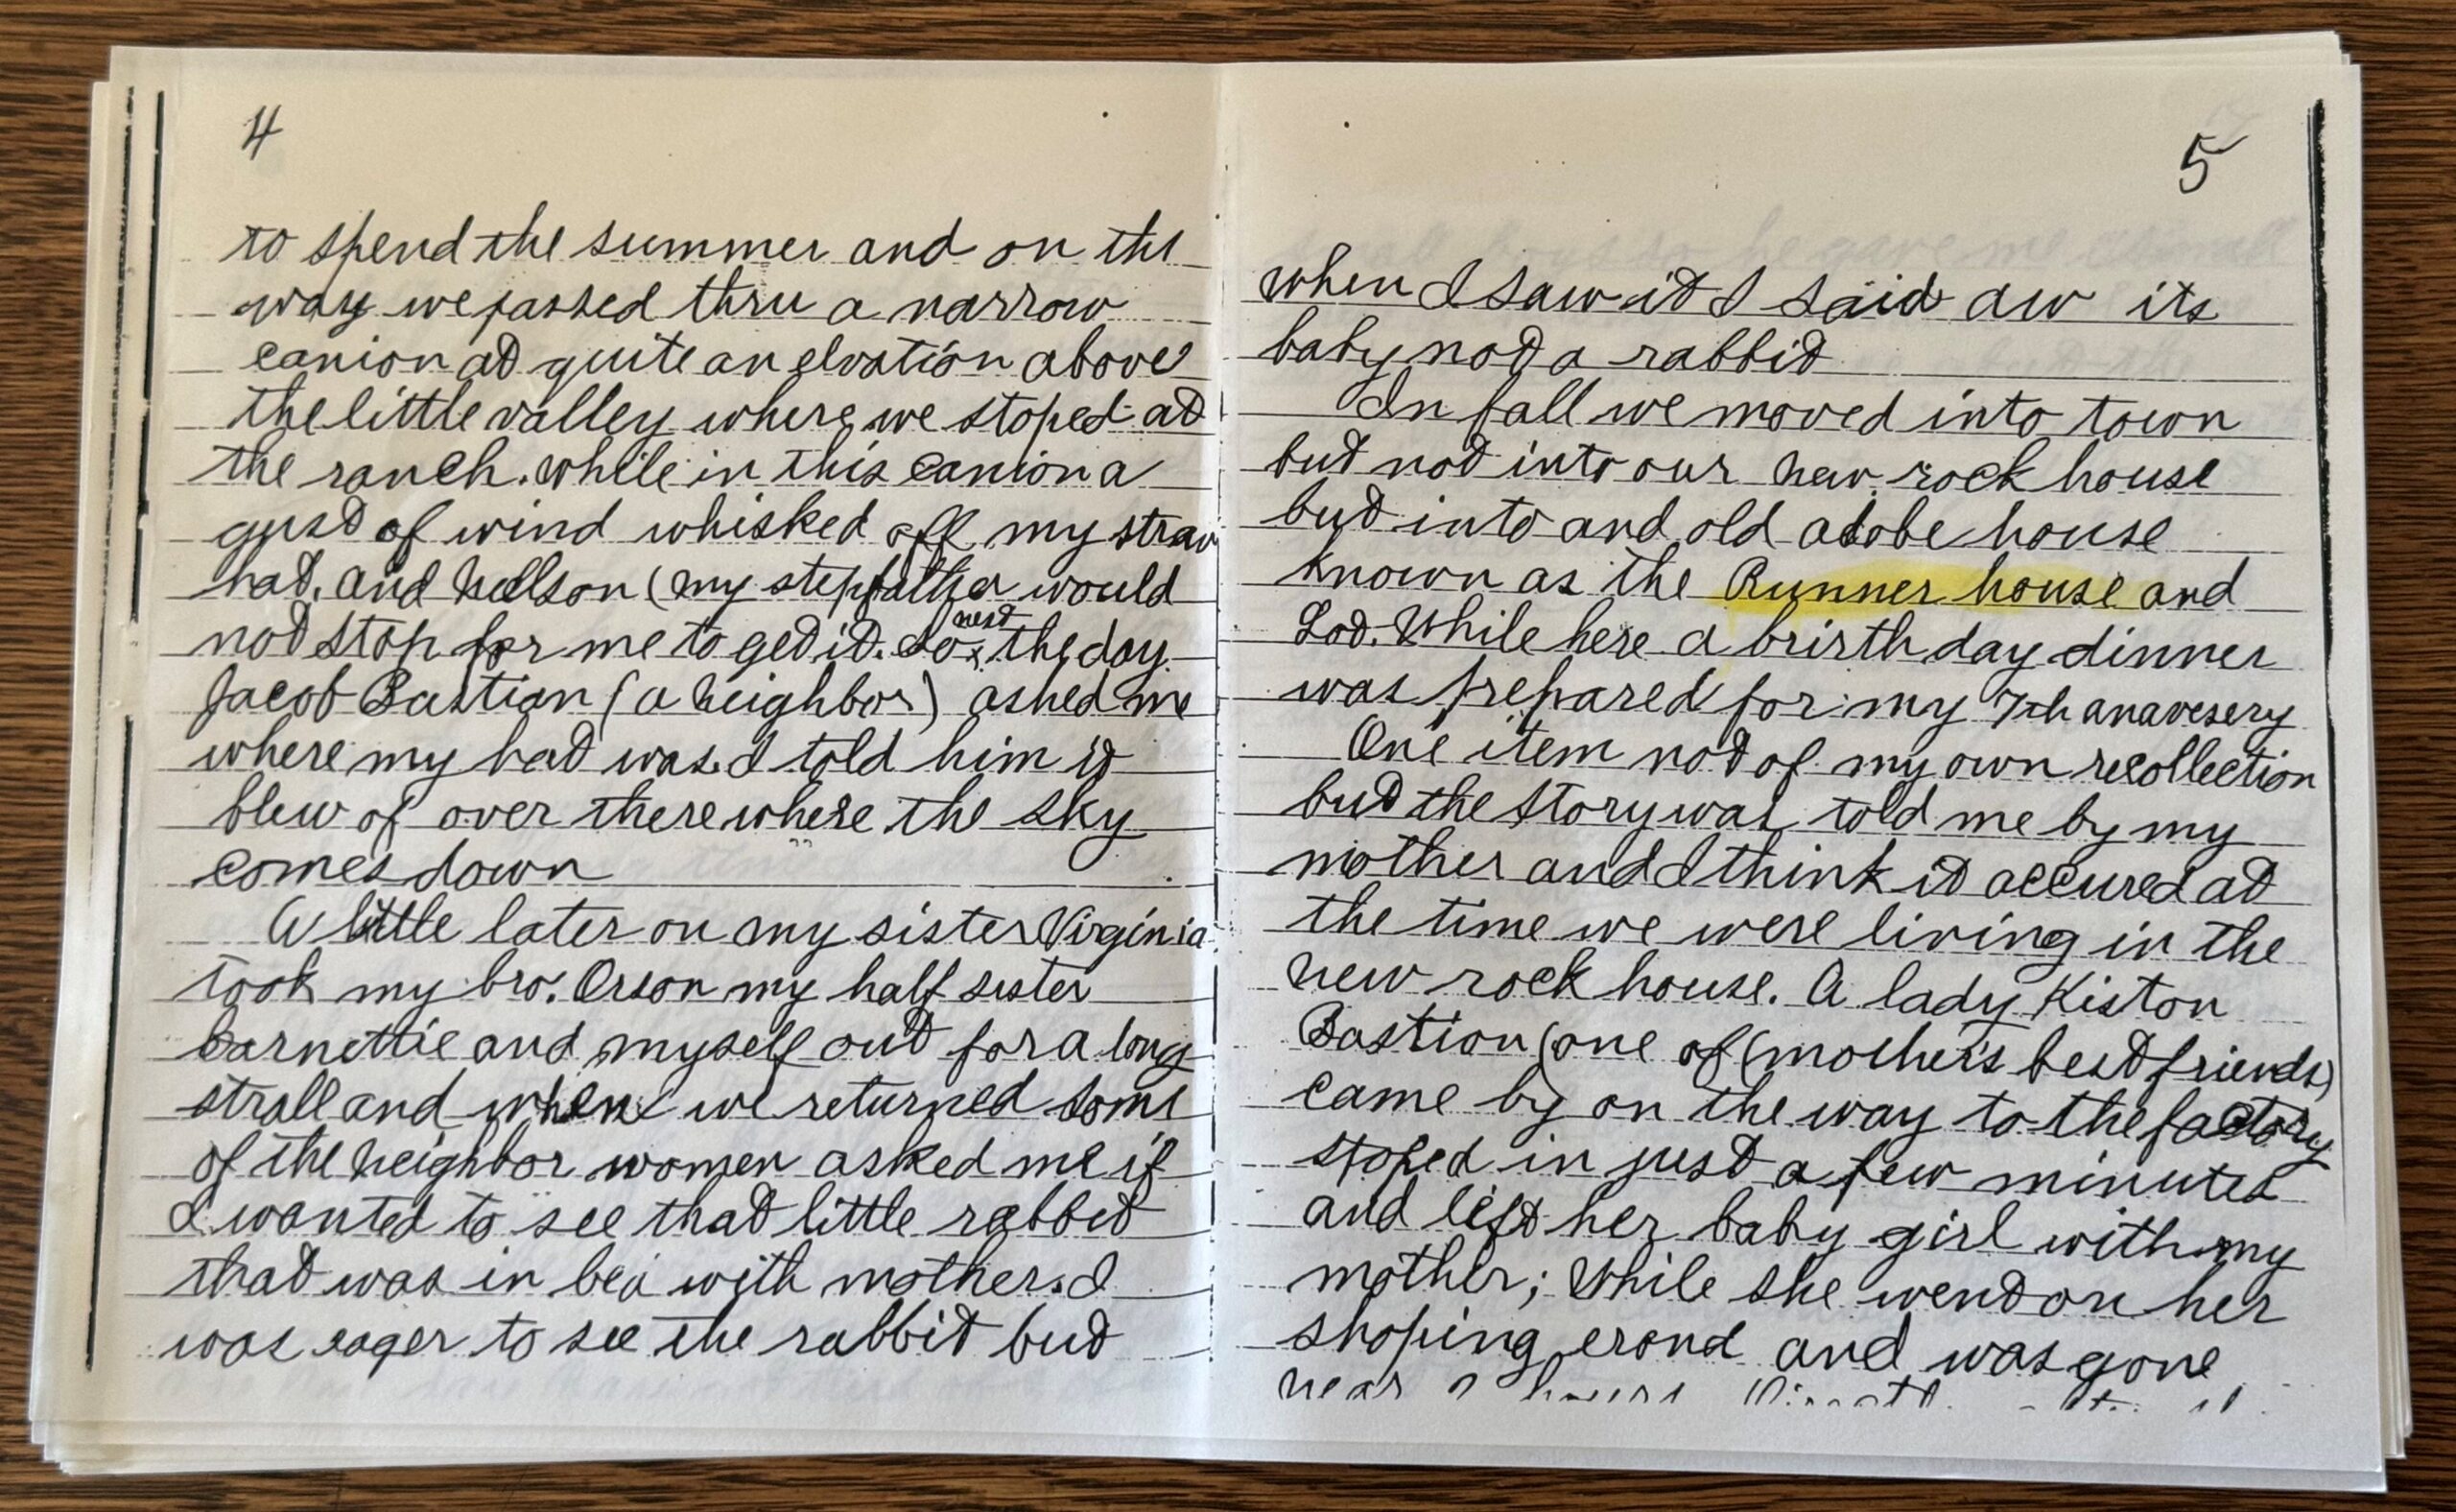 4
to spend the summer and on the
way we passed thru a narrow
canion at quite an elvation above
the little valley where we stoped at
the ranch. While in this canion a
gust of wind whisked off my straw
hat. and Nellson (my stepfather would
not stop for me to get it. So next the day
Jacob Bastian (a neighbor) asked me
where my hat was. I told him it
blew of over there where the sky
comes down
A little later on my sister Virginia
took my bro. Orson my half sister
barnettie and myself out for a long
strall and when we returned some
of the neighbor women asked me if
I wanted to see that little rabbit
that was in bed with mother. I
was eager to see the rabbit but
5
when I saw it I said aw its
baby not a rabbit
In fall we moved into town
but not into our new rock house
but into and old adobe house
known as the Runner house and
Lot. While here a brirth day dinner
was prepared for my 7th anavesery
One item not of my own recollection
but the story was told me by my
mother and I think it accured at
the time we were living in the
new rock house. A lady Kiston
Bastion (one of (mothers best friends)
came by on the way to the factory
stoped in just a few minutes
and left her baby girl with my
mother; While she went on her
shoping erond and was gone
near 2 hours